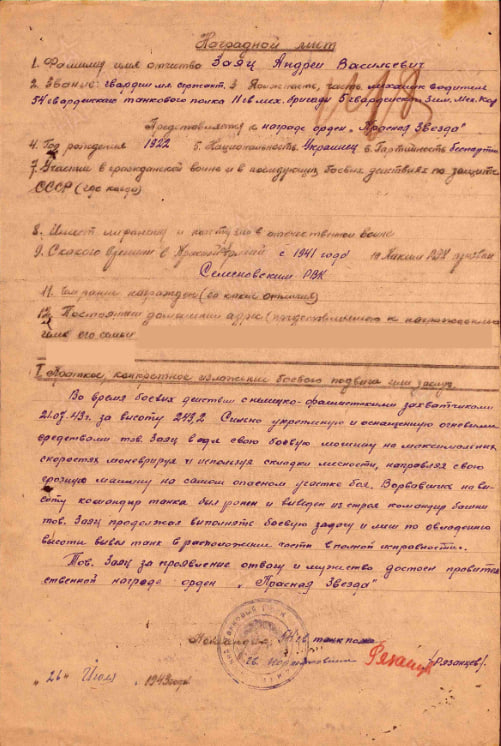 Наградной лист
1. Фамилия имя отчество Заяц Андрей Васильевич
2. Звание: гвардии мл. сержант 3. Должность, часть механик водитель
54 гвардейского танкового полка 11 гв. мех. бригады 5 гвардейской Зим. Мех. Кор
Представляется к награде орден „Красная Звезда"
4. Год рождения 1922 5. Национальность Украинец 6. Партийность беспартий
7. Участие в гражданской войне и в последующих боевых действиях по защите
СССР (где когда)
8. Имеет ли ранения и контузии в отечественной войне
9. С какого времени в Красной Армии с 1941 года 10 Каким РВК призван
Семеновским РВК
11. Чем ранее награжден (за какие отличия)
12. Постоянный домашний адрес (представляемого к награждению и
адрес его семьи
I. Краткое, конкретное изложение боевого подвига или заслуг
Во время боевых действий с немецко-фашистскими захватчиками
21.07.43г. за высоту 243,2 Сильно укрепленную и оснащенную огневыми
средствами тов. Заяц вёл свою боевую машину на максимальных
скоростях маневрируя и используя складки местности, направляя свою
грозную машину на самом опасном участке боя. Ворвавшись на вы-
соту командир танка был ранен и выведен из строя командир башни
тов. Заяц продолжал выполнять боевую задачу и лиш по овладению
высоты вывел танк в расположение части в полной исправности.
Тов. Заяц за проявление отвагу и мужество достоен правител
ственной награде орден „Красная Звезда"
Командир 54 гв. танк полка
гв. подполковник Рязанцев /Рязанцев/
„26" Июля 1943 года